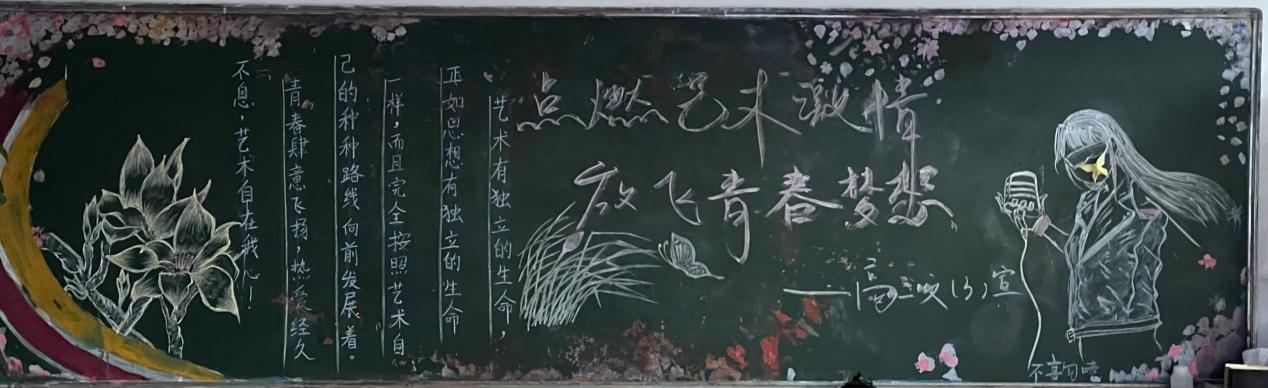 点燃艺术激情
放飞青春梦想
——高二文(3)宣
艺术有独立的生命，
正如思想有独立的生命
一样，而且完全按照艺术自
己的种种路线向前发展着。
青春肆意飞扬，热爱经久
不息，艺术自在我心！